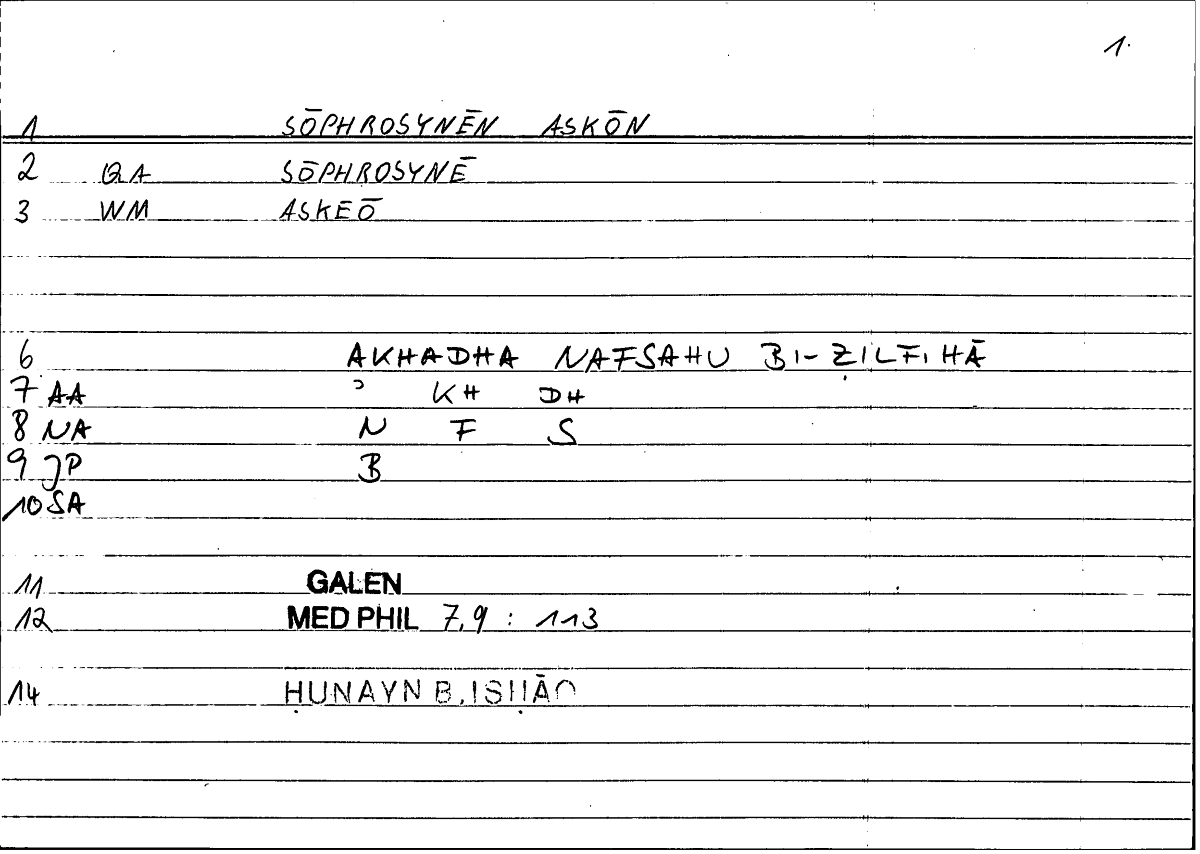 1.
1 SŌPHROSYNĒN ASKŌN
2 QA SŌPHROSYNĒ
3 WM ASKEŌ
6 AKHADHA NAFSAHU BI-ẒILFIHĀ
7 AA ʾ KH DH
8 NA N F S
9 JP B
10 SA
11 GALEN
12 MED PHIL 7,9 : 113
14 ḤUNAYN B. ISḤĀQ